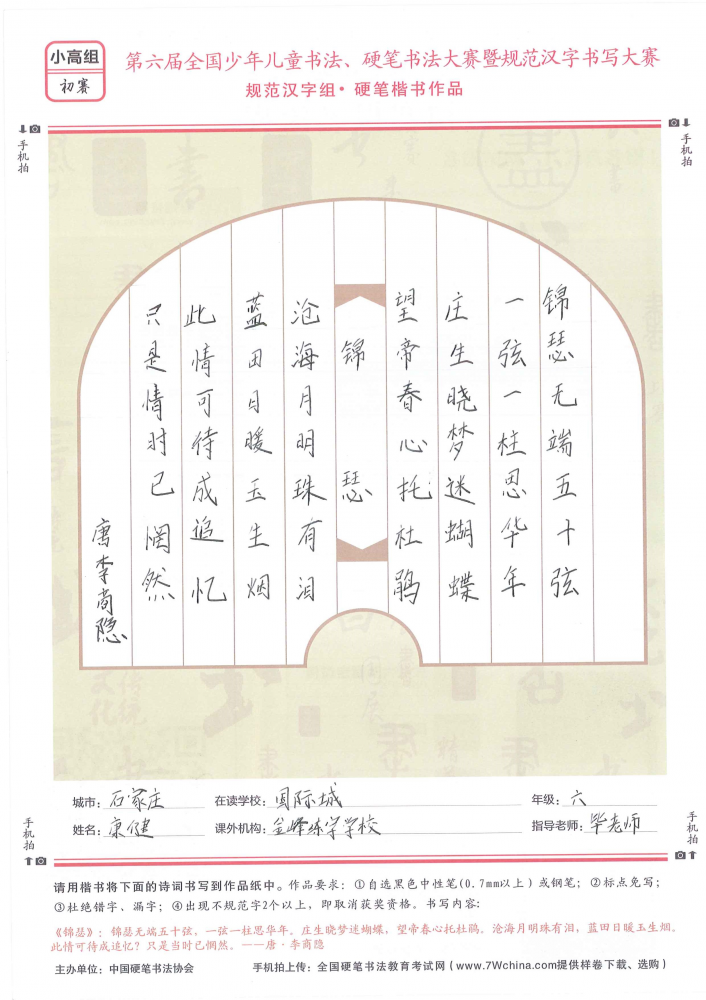 小高组
初赛
第六届全国少年儿童书法、硬笔书法大赛暨规范汉字书写大赛
规范汉字组·硬笔楷书作品
手机拍
手机拍
锦瑟无端五十弦
一弦一柱思华年
庄生晓梦迷蝴蝶
望帝春心托杜鹃
锦瑟
沧海月明珠有泪
蓝田日暖玉生烟
此情可待成追忆
只是情时已惘然
唐李尚隐
城市：石家庄 在读学校：国际城 年级：六
姓名：康健 课外机构：金峰练字学校 指导老师：毕老师
手机拍
手机拍
请用楷书将下面的诗词书写到作品纸中。作品要求：①自选黑色中性笔(0.7mm以上）或钢笔；②标点免写；
③杜绝错字、漏字；④出现不规范字2个以上，即取消获奖资格。书写内容：
《锦瑟》：锦瑟无端五十弦，一弦一柱思华年。庄生晓梦迷蝴蝶，望帝春心托杜鹃。沧海月明珠有泪，蓝田日暖玉生烟。
此情可待成追忆？只是当时已惘然。——唐·李商隐
主办单位：中国硬笔书法协会 手机拍上传：全国硬笔书法教育考试网（www.7Wchina.com提供样卷下载、选购）